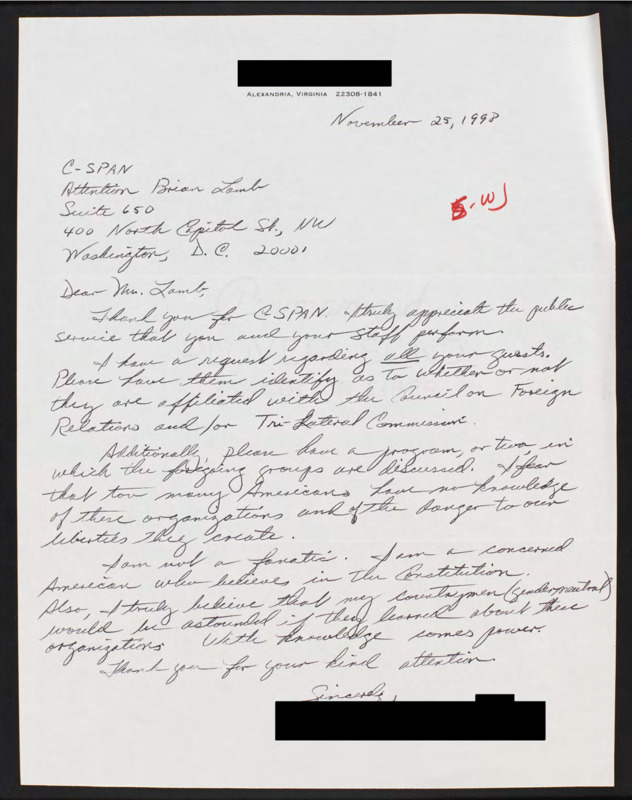 ALEXANDRIA, VIRGINIA 22308-1841
November 25, 1998
C-SPAN
Attention Brian Lamb
Suite 650
400 North Capitol St., NW
Washington, D.C. 20001
Dear Mr. Lamb,
Thank you for C-SPAN. I truly appreciate the public
service that you and your staff perform.
I have a request regarding all your guests.
Please have them identify as to whether or not
they are affiliated with the Council on Foreign
Relations and/or Tri-Lateral Commission.
Additionally, please have a program, or two, in
which the foregoing groups are discussed. I fear
that too many Americans have no knowledge
of these organizations and of the danger to our
liberties they create.
I am not a fanatic. I am a concerned
American who believes in the Constitution.
Also, I truly believe that my countrymen (gender neutral)
would be astounded if they learned about these
organizations. With knowledge comes power.
Thank you for your kind attention.
Sincerely,